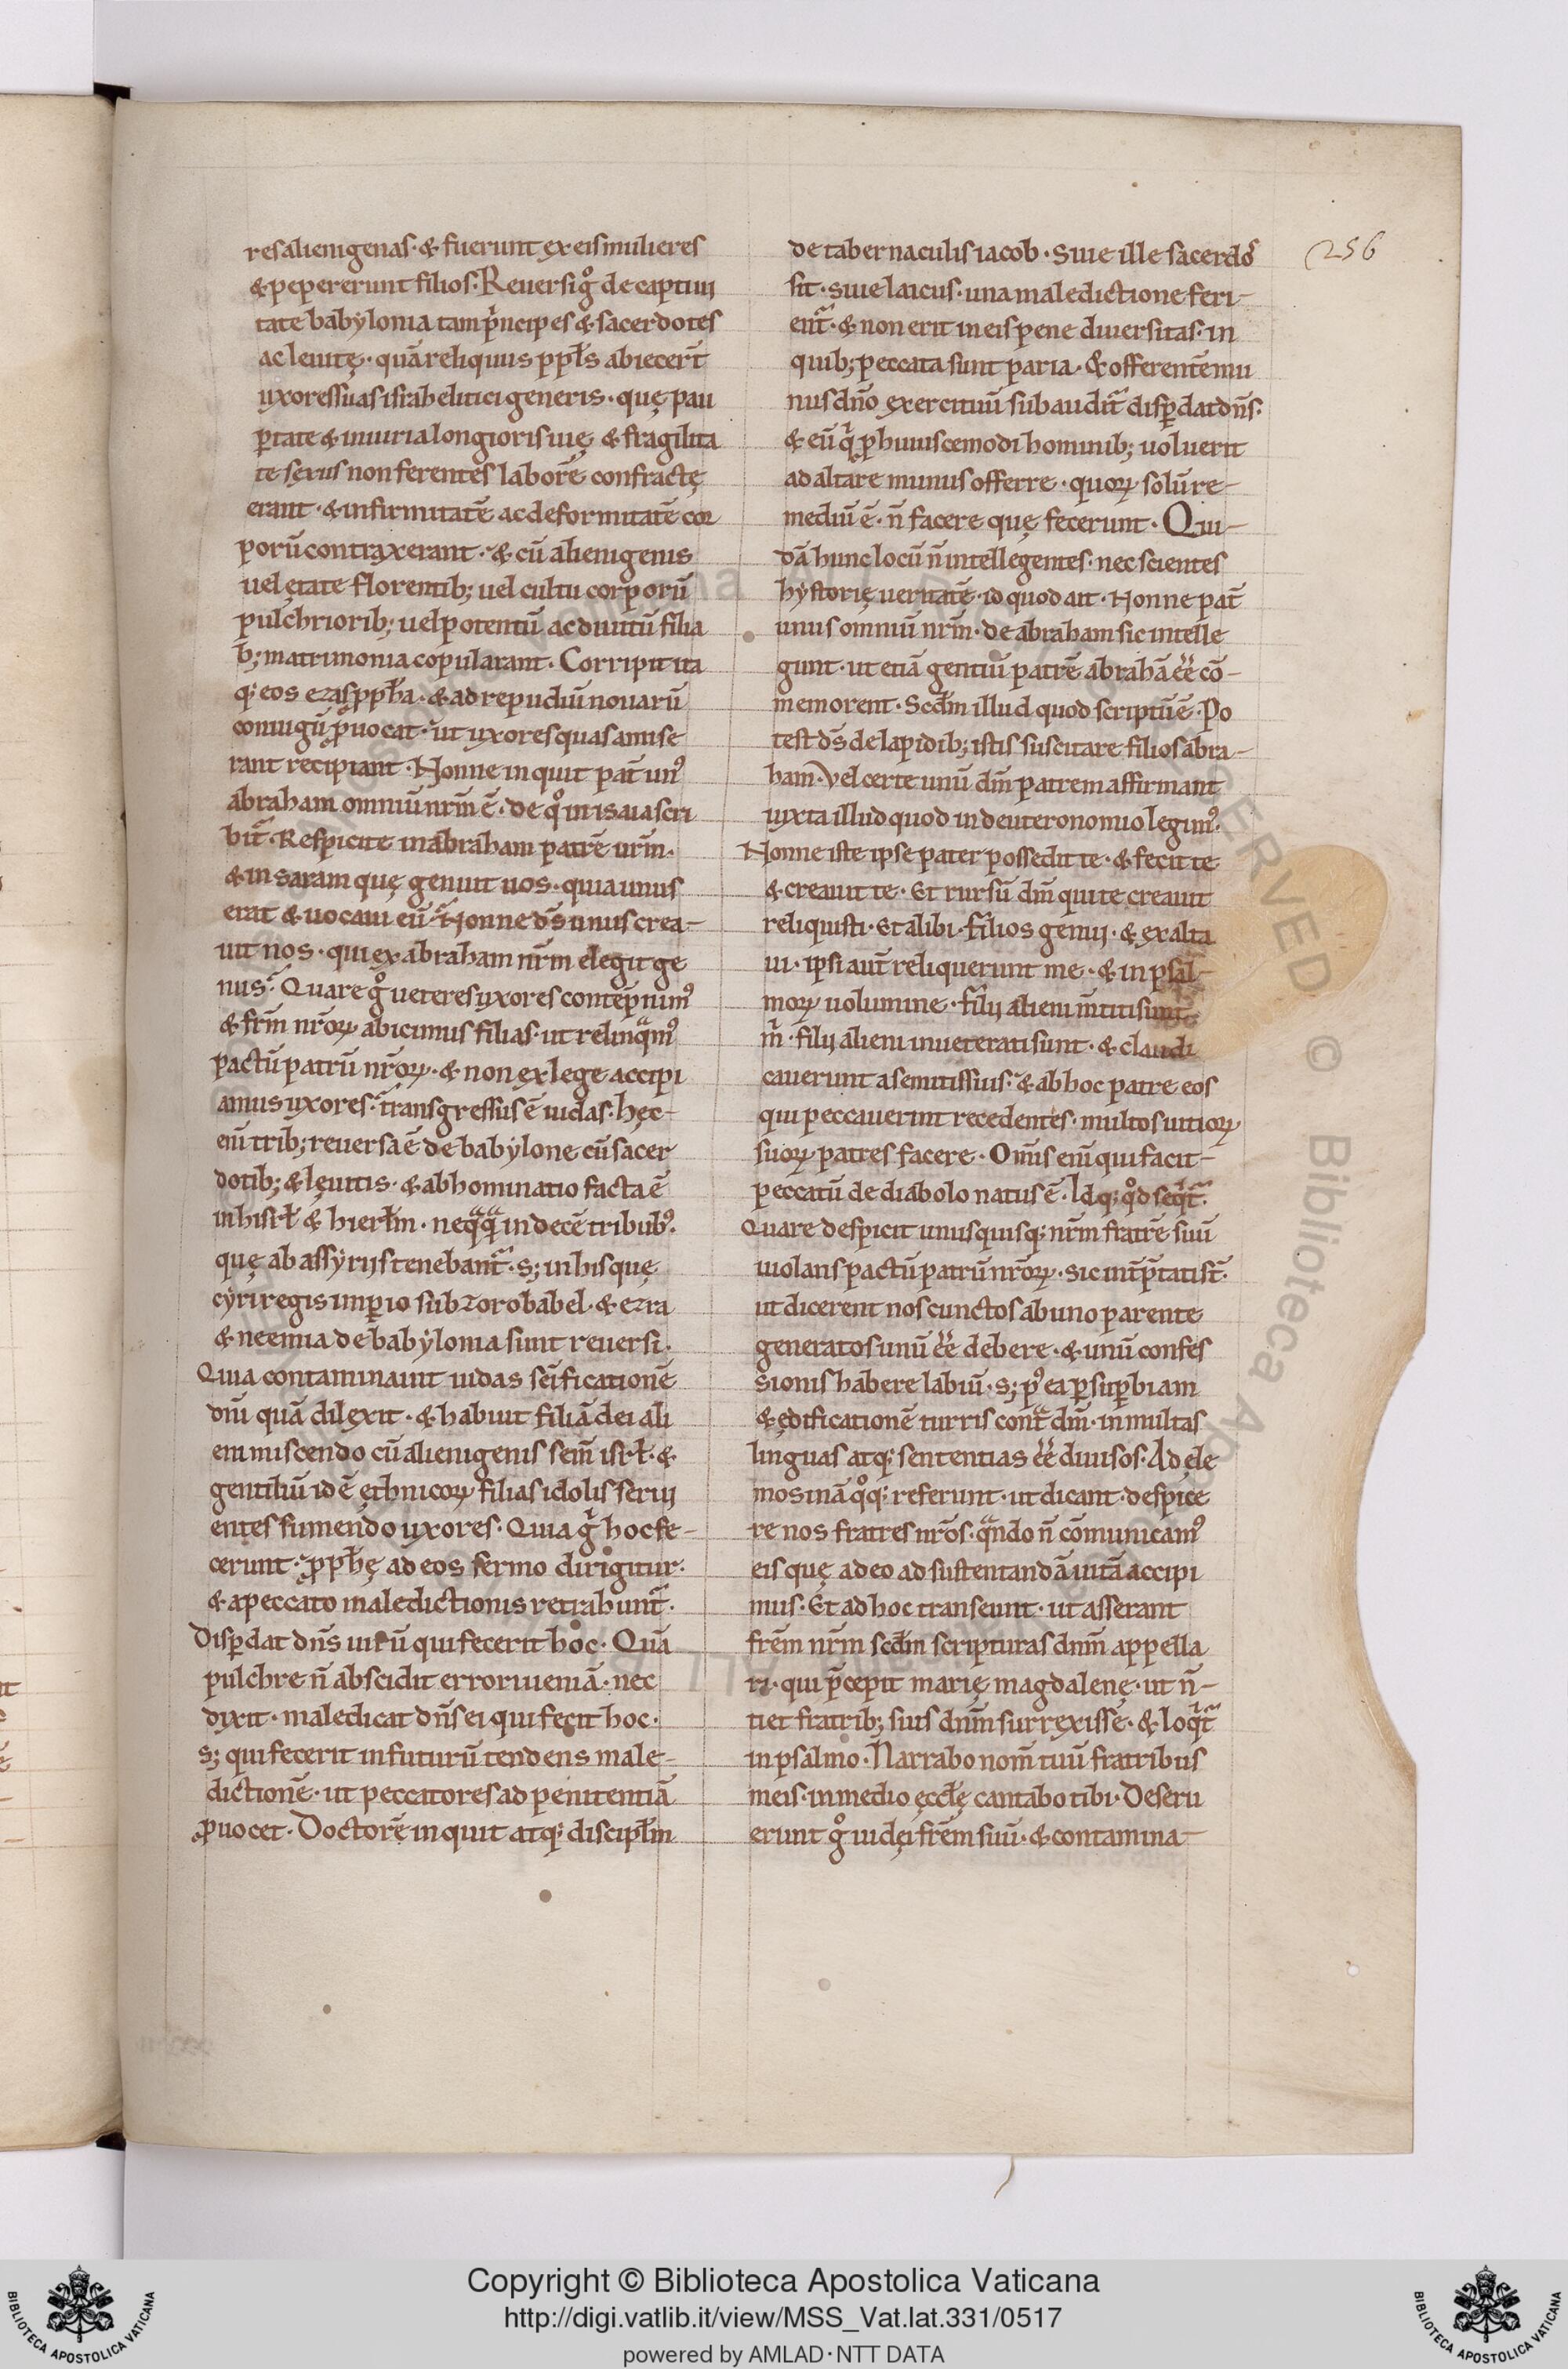 256
res alienigenas · & fuerunt ex eis mulieres
& pepererunt filios · Reuersi gͦ de captiui
tate babylonia tam pͥncipes & sacerdotes
ac leuitę · quā reliquus ppl̄s abiecer̄t
uxores suas israhelitici generis · quę pau
p̱tate & iniuria longioris uię & fragilita
te sexus non ferentes laborē confractę
erant · & infirmitatē ac deformitatē cor
porū contraxerant · & cū alienigenis
uel ętate florentib; uel cultu corporū
pulchriorib; uel potentū ac diuitū filia
b; matrimonia copularant · Corripit ita
q; eos ezras ꝓph̄a · & ad repudiū nouarū
coniugū ꝓuocat · ut uxores quas amise
rant recipiant · Nonne inquit pat̄ unꝰ
abraham omniū nr̄m ē · de qͦ in isaia scri
bit᷑ · Respicite in abraham patrē ur̄m ·
& in saram quę genuit uos · quia unus
erat & uocaui eū · Nonne ds̄ unus crea-
uit nos · qui ex abraham nr̄m elegit ge
nus · Quare gͦ ueteres uxores contēpnimꝰ
& fr̄m nr̄oꝝ abicimus filias · ut relinqͣmꝰ
pactū patrū nr̄oꝝ · & non ex lege accipi
amus uxores · transgressus ē iudas · hęc-
eni᷑ trib; reuersa ē de babylone cū sacer
dotib; & lęuitis · & abhominatio facta ē
in hisrł & hierłm · neqͣqͣ in decē tribubꝰ ·
quę ab assyriis tenebant᷑ · s; in his quę
cyri regis imp̱io sub zorobabel · & ezra
& neemia de babylonia sunt reuersi ·
Quia contaminauit iudas sc̄ificationē
dn̄i quā dilexit · & habuit filiā dei ali
eni miscendo cū alienigenis sem̄ isrł · &
gentiliū id ē ęthnicoꝝ filias idolis serui
entes sumendo uxores · Quia gͥ hoc fe-
cerunt · ꝓph̄ę ad eos sermo dirigitur ·
& a peccato maledictionis retrahunt᷑ ·
Disp̱dat dn̄s uirū qui fecerit hoc · Quā
pulchre n̄ abscidit errori ueniā · nec
dixit · maledicat dn̄s ei qui fecit hoc ·
s; qui fecerit in futurū tendens male-
dictionē · ut peccatores ad penitentiā
ꝓuocet · Doctorē inquit atq; discipłm
de tabernaculis iacob · Siue ille sacerdoˢ
sit · siue laicus · una maledictione feri-
ent᷑ · & non erit in eis pene diuersitas · in
quib; peccata sunt paria · & offerentē mu
nus dn̄o exercituū subaudit᷑ disp̱dat dn̄s ·
& eū qͥ p̱ huiuscemodi hominib; uoluerit
ad altare munus offerre · quoꝝ solū re-
mediū ē · n̄ facere quę fecerunt · Qui-
dā hunc locū n̄ intellegentes · nec scientes
hystorię ueritatē · id quod ait · Nonne pat̄
unus omniū nr̄m · de abraham sic intelle
gunt · ut etiā gentiū patrē abrahā ēē cō-
memorent · Scd̄m illud quod scriptū ē · Po
test ds̄ de lapidib; istis suscitare filios abra-
ham · Vel certe unū dm̄ patrem affirmant
iuxta illud quod in deuteronomio legimꝰ ·
Nonne iste ipse pater possedit te · & fecit te
& creauit te · Et rursū dm̄ qui te creauit
reliquisti · Et alibi · filios genui · & exalta
ui · ipsi aut̄ reliquerunt me · & in psal-
moꝝ uolumine · filii alieni m̄titi sunt
m̄ · filii alieni inueterati sunt · & claudi
cauerunt a semitis suis · & ab hoc patre eos
qui peccauerint recedentes · multos uitioꝝ
suoꝝ patres facere · Omīs eni᷑ qui facit-
peccatū de diabolo natus ē · Idq; qͦd seqͥt᷑ ·
Quare despicit unusquisq; nr̄m fratrē suū
uiolans pactū patrū nr̄oꝝ · sic int̄p̄tati st̄ ·
ut dicerent nos cunctos ab uno parente
generatos unū ēē debere · & unū confes
sionis habere labiū · s; pꝰ ea p̱ sup̱biam
& ędificationē turris contͣ dm̄ · in multas
linguas atq; sententias ēē diuisos · Ad ęle
mosinā qͦq; referunt · ut dicant · despice
re nos fratres nr̄os · qͣndo n̄ cōmunicamꝰ
eis quę a deo ad sustentandā uitā accipi
mus · Et ad hoc transeunt · ut asserant
frēm nr̄m scd̄m scripturas dnm̄ appella
ri · qui p̄cepit marię magdalenę · ut n̄-
tiet fratrib; suis dnm̄ surrexisse · & loqͥt᷑
in psalmo · Narrabo nom̄ tuū fratribus
meis · in medio ęccłę cantabo tibi · Deseru
erunt gͦ iudęi frēm suū · & contamina-
Copyright © Biblioteca Apostolica Vaticana
http://digi.vatlib.it/view/MSS_Vat.lat.331/0517
powered by AMLAD·NTT DATA
BIBLIOTECA APOSTOLICA VATICANA
BIBLIOTECA APOSTOLICA VATICANA